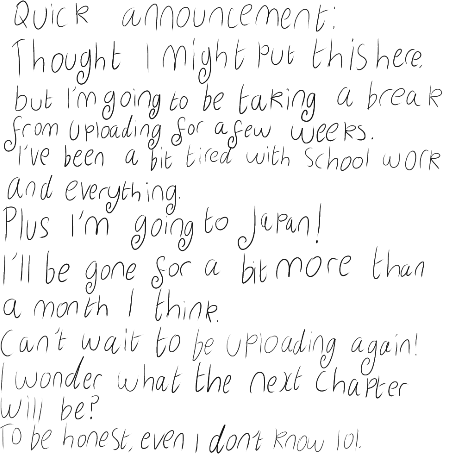 Quick announcement:
Thought I might put this here,
but I'm going to be taking a break
from uploading for a few weeks.
I've been a bit tired with school work
and everything.
Plus I'm going to Japan!
I'll be gone for a bit more than
a month I think.
Can't wait to be uploading again!
I wonder what the next chapter
will be?
To be honest, even I don't know lol.